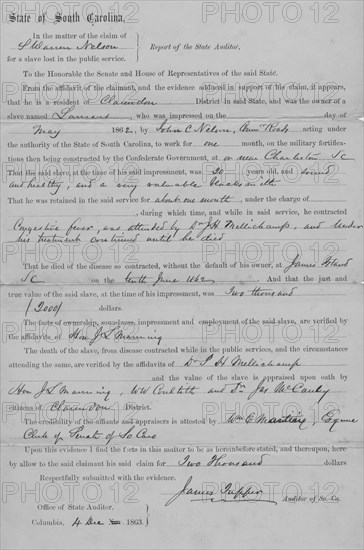 State of South Carolina.
In the matter of the claim of
S Warren Nelson
for a slave lost in the public service.
Report of the State Auditor.
To the Honorable the Senate and House of Representatives of the said State.
From the affidavit of the claimant, and the evidence adduced in support of his claim, it appears,
that he is a resident of Clarendon District in said State, and was the owner of a
slave named who was impressed on the day of
May 1862, by John C Nelson, Com Roads acting under
the authority of the State of South Carolina, to work for one month, on the military fortifica-
tions then being constructed by the Confederate Government, at or near Charleston SC
That the said slave, at the time of his impressment, was 20 years old, and sound
and healthy, and a very valuable blacksmith
That he was retained in the said service for about one month, under the charge of
, during which time, and while in said service, he contracted
Congestive fever, was attended by Dr J H Mellichamp, and under
his treatment continued until he died
That he died of the disease so contracted, without the default of his owner, at James Island
SC on the tenth June 1862 And that the just and
true value of the said slave, at the time of his impressment, was Two thousand
(2000) dollars.
The facts of ownership, soundness, impressment and employment of the said slave, are verified by
the affidavits of Hon J L Manning
The death of the slave, from disease contracted while in the public service, and the circumstances
attending the same, are verified by the affidavits of Dr J H Mellichamp
and the value of the slave is appraised upon oath by
Hon J L Manning, W W and Dr Jas McCauley
citizens of Clarendon District.
The credibility of the affiants and appraisers is attested by Wm E Martin, Esquire
Clerk of Senate of So Caro
Upon this evidence I find the facts in this matter to be as hereinbefore stated, and thereupon, here-
by allow to the said claimant his said claim for Two Thousand dollars
Respectfully submitted with the evidence.
James Tupper
Auditor of So. Ca.
Office of State Auditor,
Columbia, 4 Dec 1863.